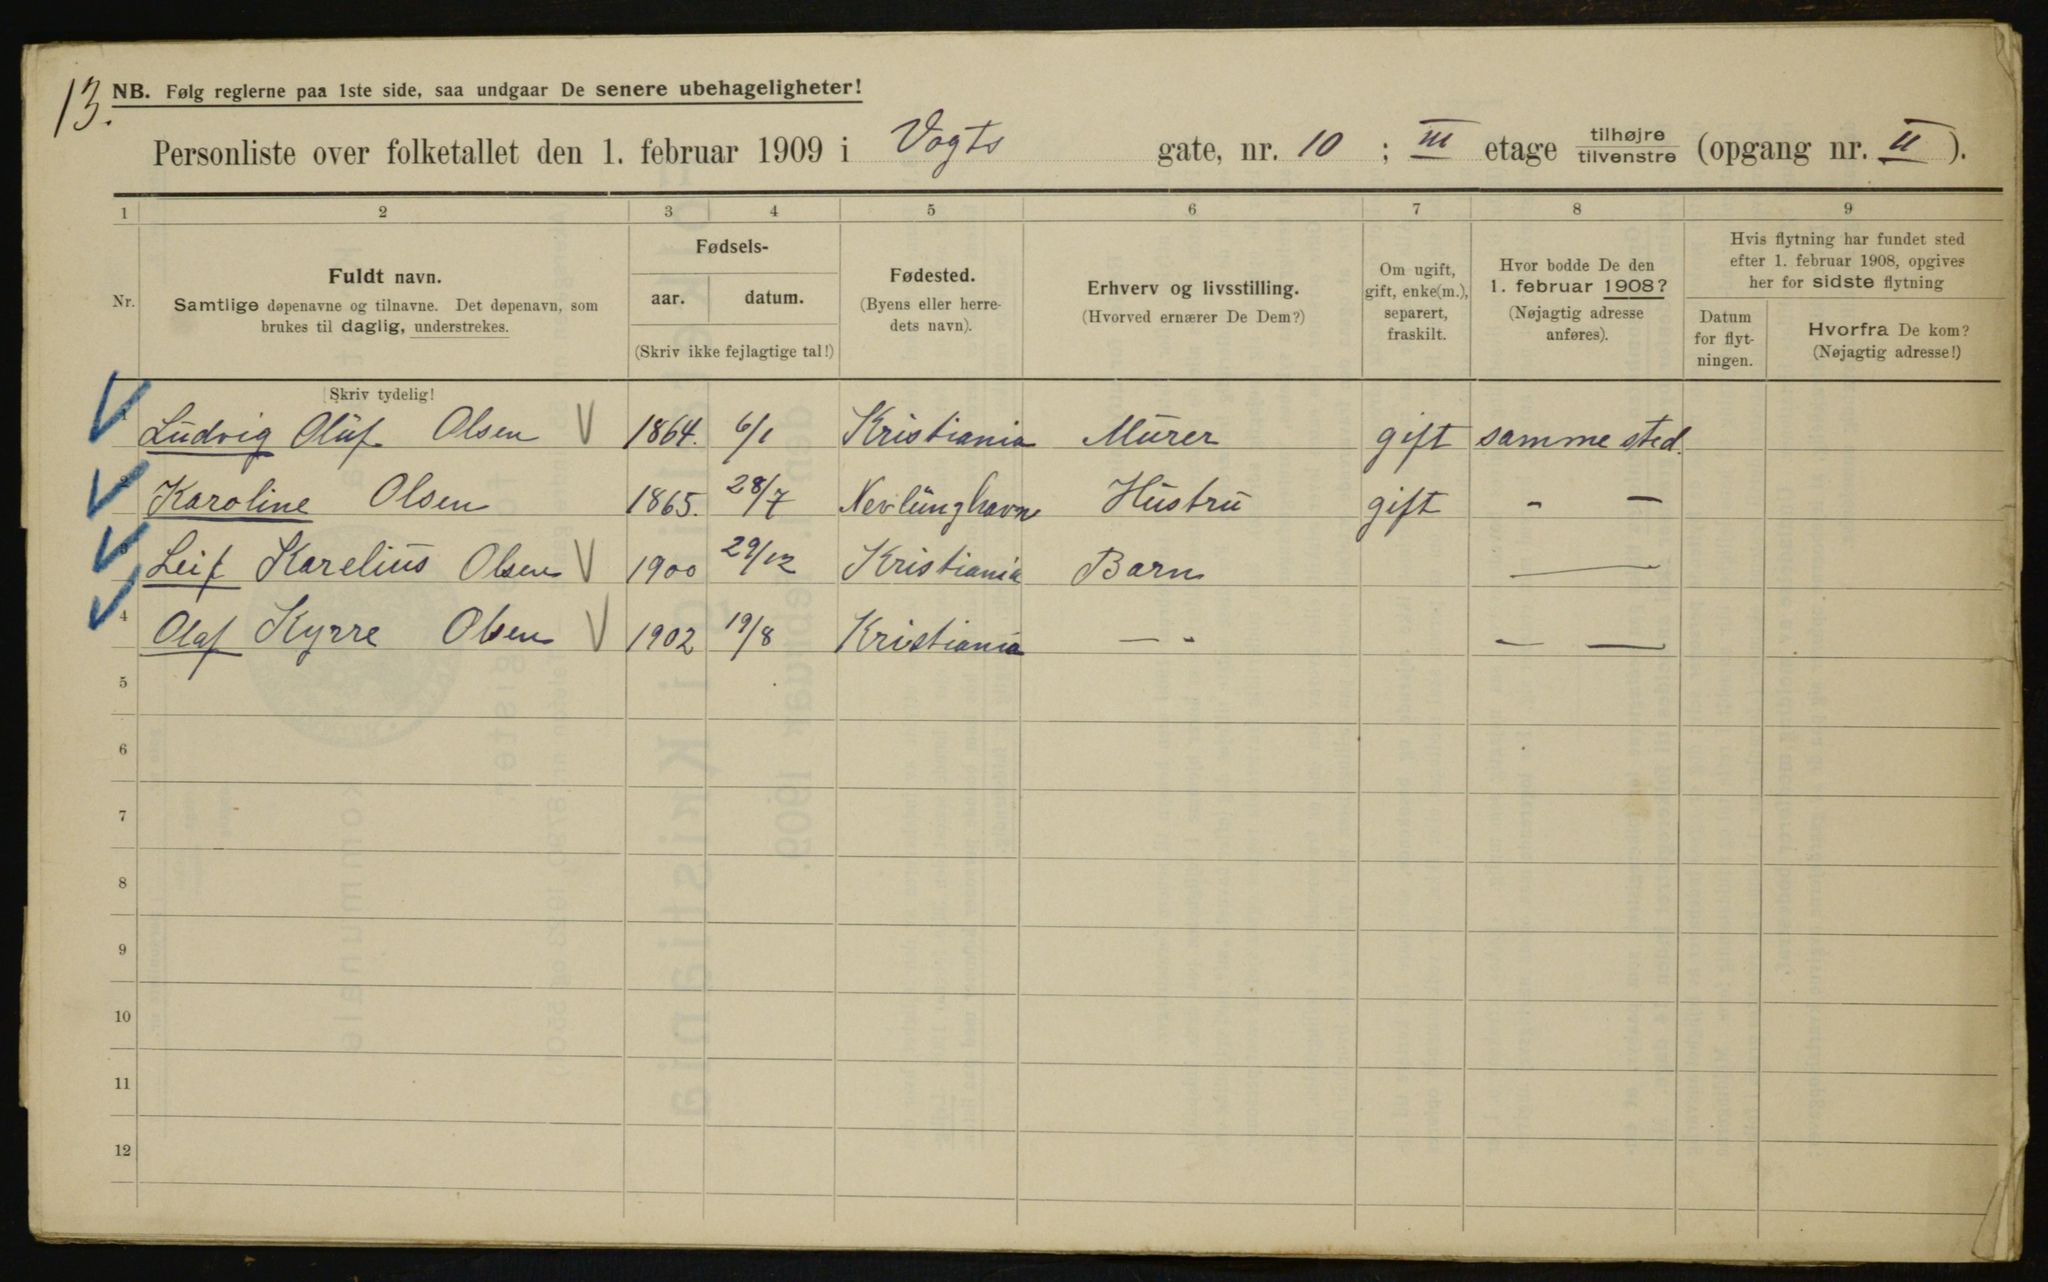 13.
NB. Følg reglerne paa 1ste side, saa undgaar De senere ubehageligheter!
Personliste over folketallet den 1. februar 1909 i Vogts gate, nr. 10 ; III etage tilhøjre tilvenstre (opgang nr. II ).
1 2 3 4 5 6 7 8 9
Nr.
Fuldt navn.
Samtlige døpenavne og tilnavne. Det døpenavn, som
brukes til daglig, understrekes.
Fødsels-
aar. datum.
(Skriv ikke fejlagtige tal!)
Fødested.
(Byens eller herre-
dets navn).
Erhverv og livsstilling.
(Hvorved ernærer De Dem?)
Om ugift,
gift, enke(m.),
separert,
fraskilt.
Hvor bodde De den
1. februar 1908?
(Nøjagtig adresse
anføres).
Hvis flytning har fundet sted
efter 1. februar 1908, opgives
her for sidste flytning
Datum
for flyt-
ningen.
Hvorfra De kom?
(Nøjagtig adresse!)
Skriv tydelig!
1 Ludvig Oluf Olsen 1864. 6/1 Kristiania Murer gift samme sted.
2 Karoline Olsen 1865. 28/7 Nevlunghavn Hustru gift - —
3 Leif Karelius Olsen 1900 29/12 Kristiania Barn —
4 Olaf Kyrre Olsen 1902 19/8 Kristiania — - — —
5
6
7
8
9
10
11
12